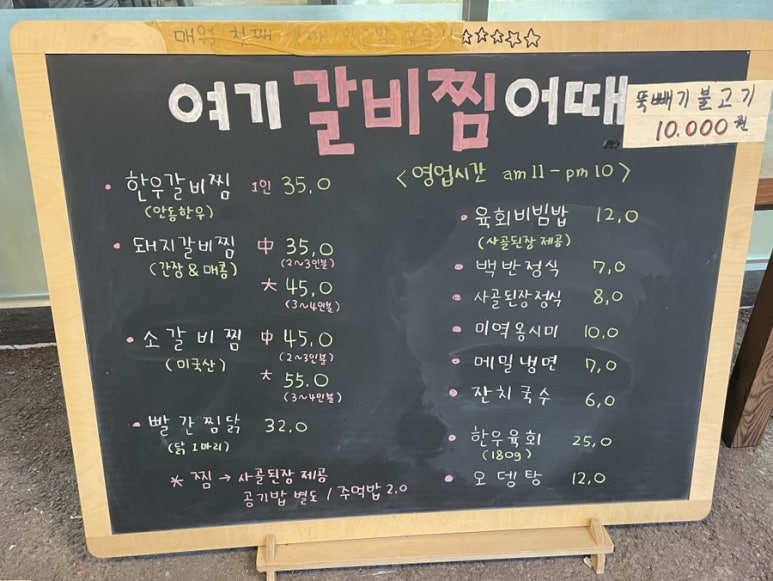 매월 첫째
여기 갈비찜 어때
뚝빼기 불고기
10.000원
<영업시간 am 11 - pm 10>
• 한우갈비찜 1인 35,0
(안동한우)
• 돼지갈비찜 中 35,0
(간장 & 매콤) (2~3인분)
大 45,0
(3~4인분)
• 소갈비찜 中 45,0
(미국산) (2~3인분)
大 55.0
(3~4인분)
• 빨간찜닭 32.0
(닭 1마리)
* 찜 → 사골된장 제공
공기밥 별도 / 주먹밥 2.0
• 육회비빔밥 12,0
(사골된장 제공)
• 백반정식 7,0
• 사골된장정식 8,0
• 미역옹시미 10,0
• 메밀냉면 7,0
• 잔치국수 6,0
• 한우육회 25,0
(180g)
• 오뎅탕 12,0